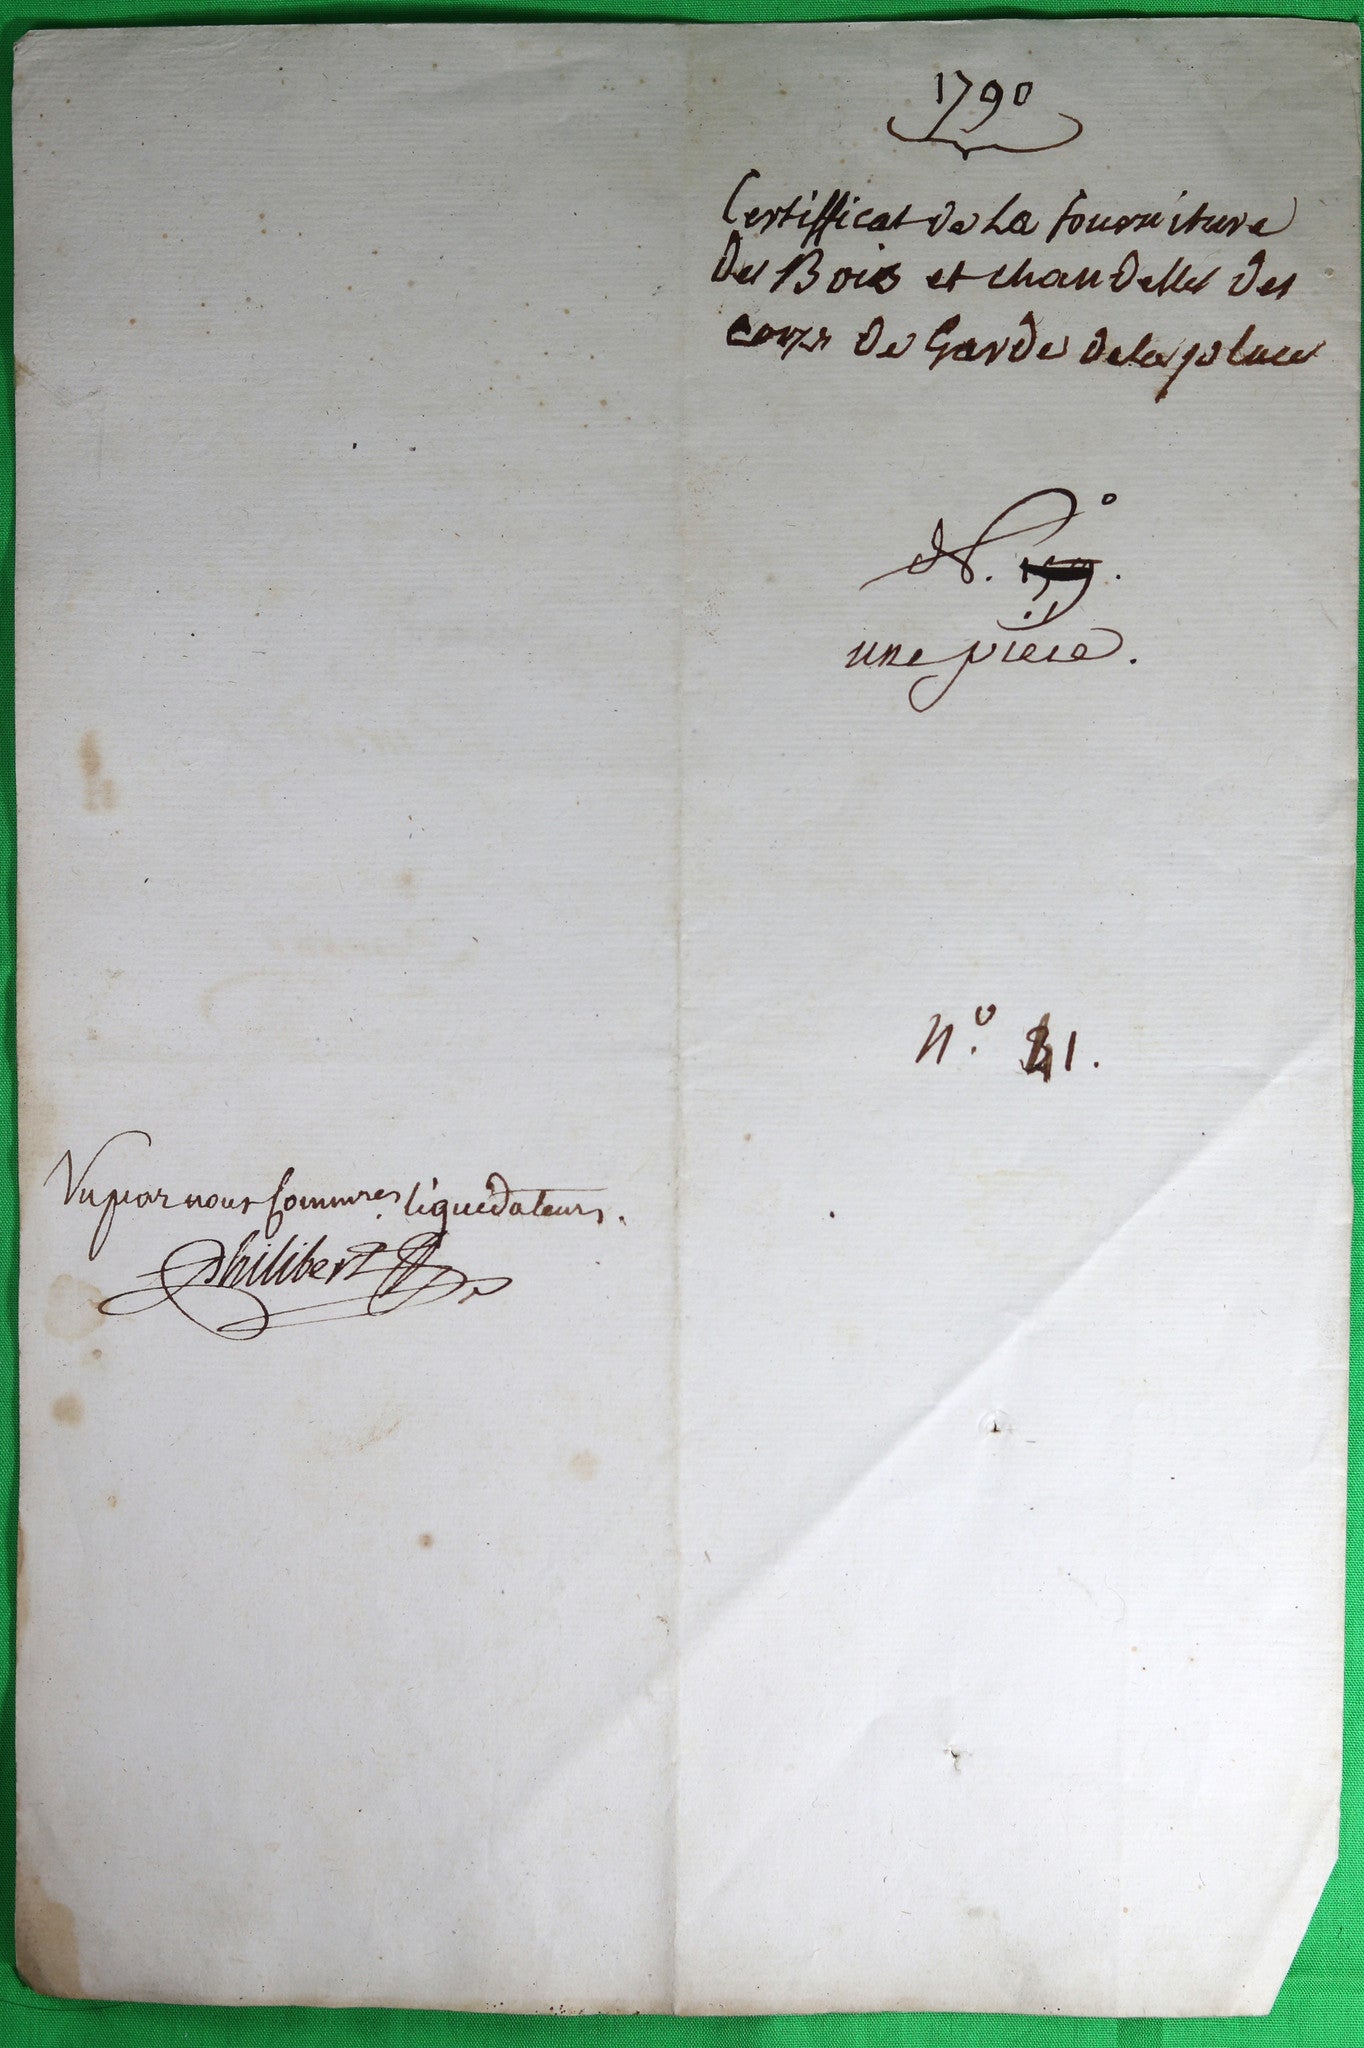 1790
Certifficat de La fourniture
des Bois et chandelles des
corps de Garde de la place
N.º
une piece.
N.º 1.
Vu par nous Commres liquidateurs.
Philibert